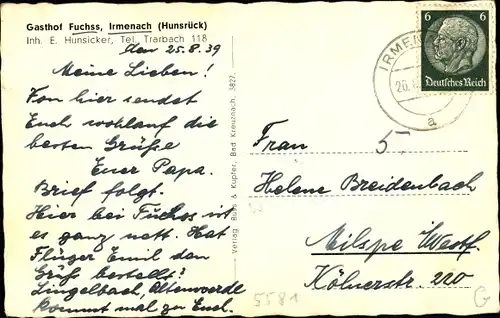 Gasthof Fuchss, Irmenach (Hunsrück)
Inh. E. Hunsicker, Tel. Trarbach 118
den 25.8.39
Meine Lieben!
Von hier sendet
Euch wohlauf die
besten Grüße
Euer Papa.
Brief folgt.
Hier bei Fuchss ist
es ganz nett. Hat
Flüger Emil den
Gruß bestellt?
Lingelbach, Altenvoerde
kommt mal zu Euch.
Verlag Buss & Kupfer, Bad Kreuznach. 3827.
IRMEN
a
6 6
Deutsches Reich
5,
Frau
Helene Breidenbach
Milspe Westf.
Kölnerstr. 220
5581
G